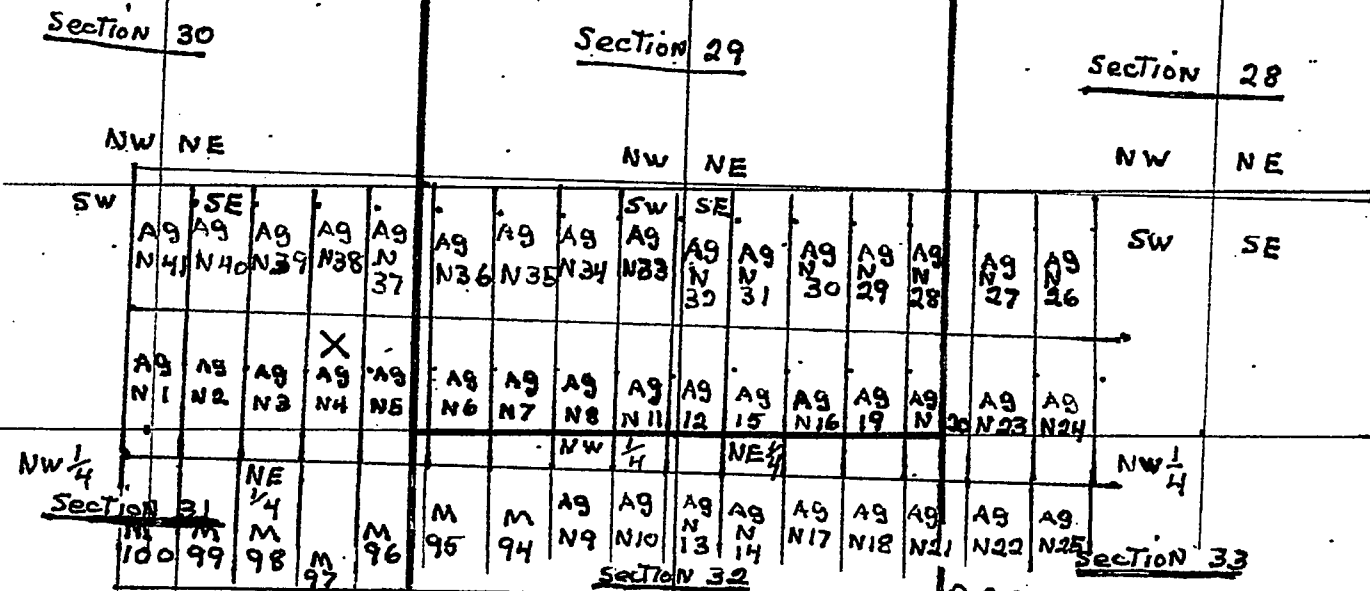 Section 30
Section 29
Section 28
NW NE
NW NE
NW NE
SW SE
SW SE
SW SE
Ag N41
Ag N40
Ag N39
Ag N38
Ag N 37
Ag N36
Ag N35
Ag N34
Ag N33
Ag N 32
Ag N 31
Ag N 30
Ag N 29
Ag N 28
Ag N 27
Ag N 26
X
Ag N1
Ag N2
Ag N3
Ag N4
Ag N5
Ag N6
Ag N7
Ag N8
Ag N11
Ag 12
Ag 15
Ag N16
Ag 19
Ag N 20
Ag N23
Ag N24
NW 1/4
NE 1/4
NW 1/4
NE 1/4
NW 1/4
Section 31
M 100
M 99
M 98
M 97
M 96
M 95
M 94
Ag N9
Ag N10
Ag N 13
Ag N 14
Ag N17
Ag N18
Ag N21
Ag N22
Ag N25
Section 32
Section 33